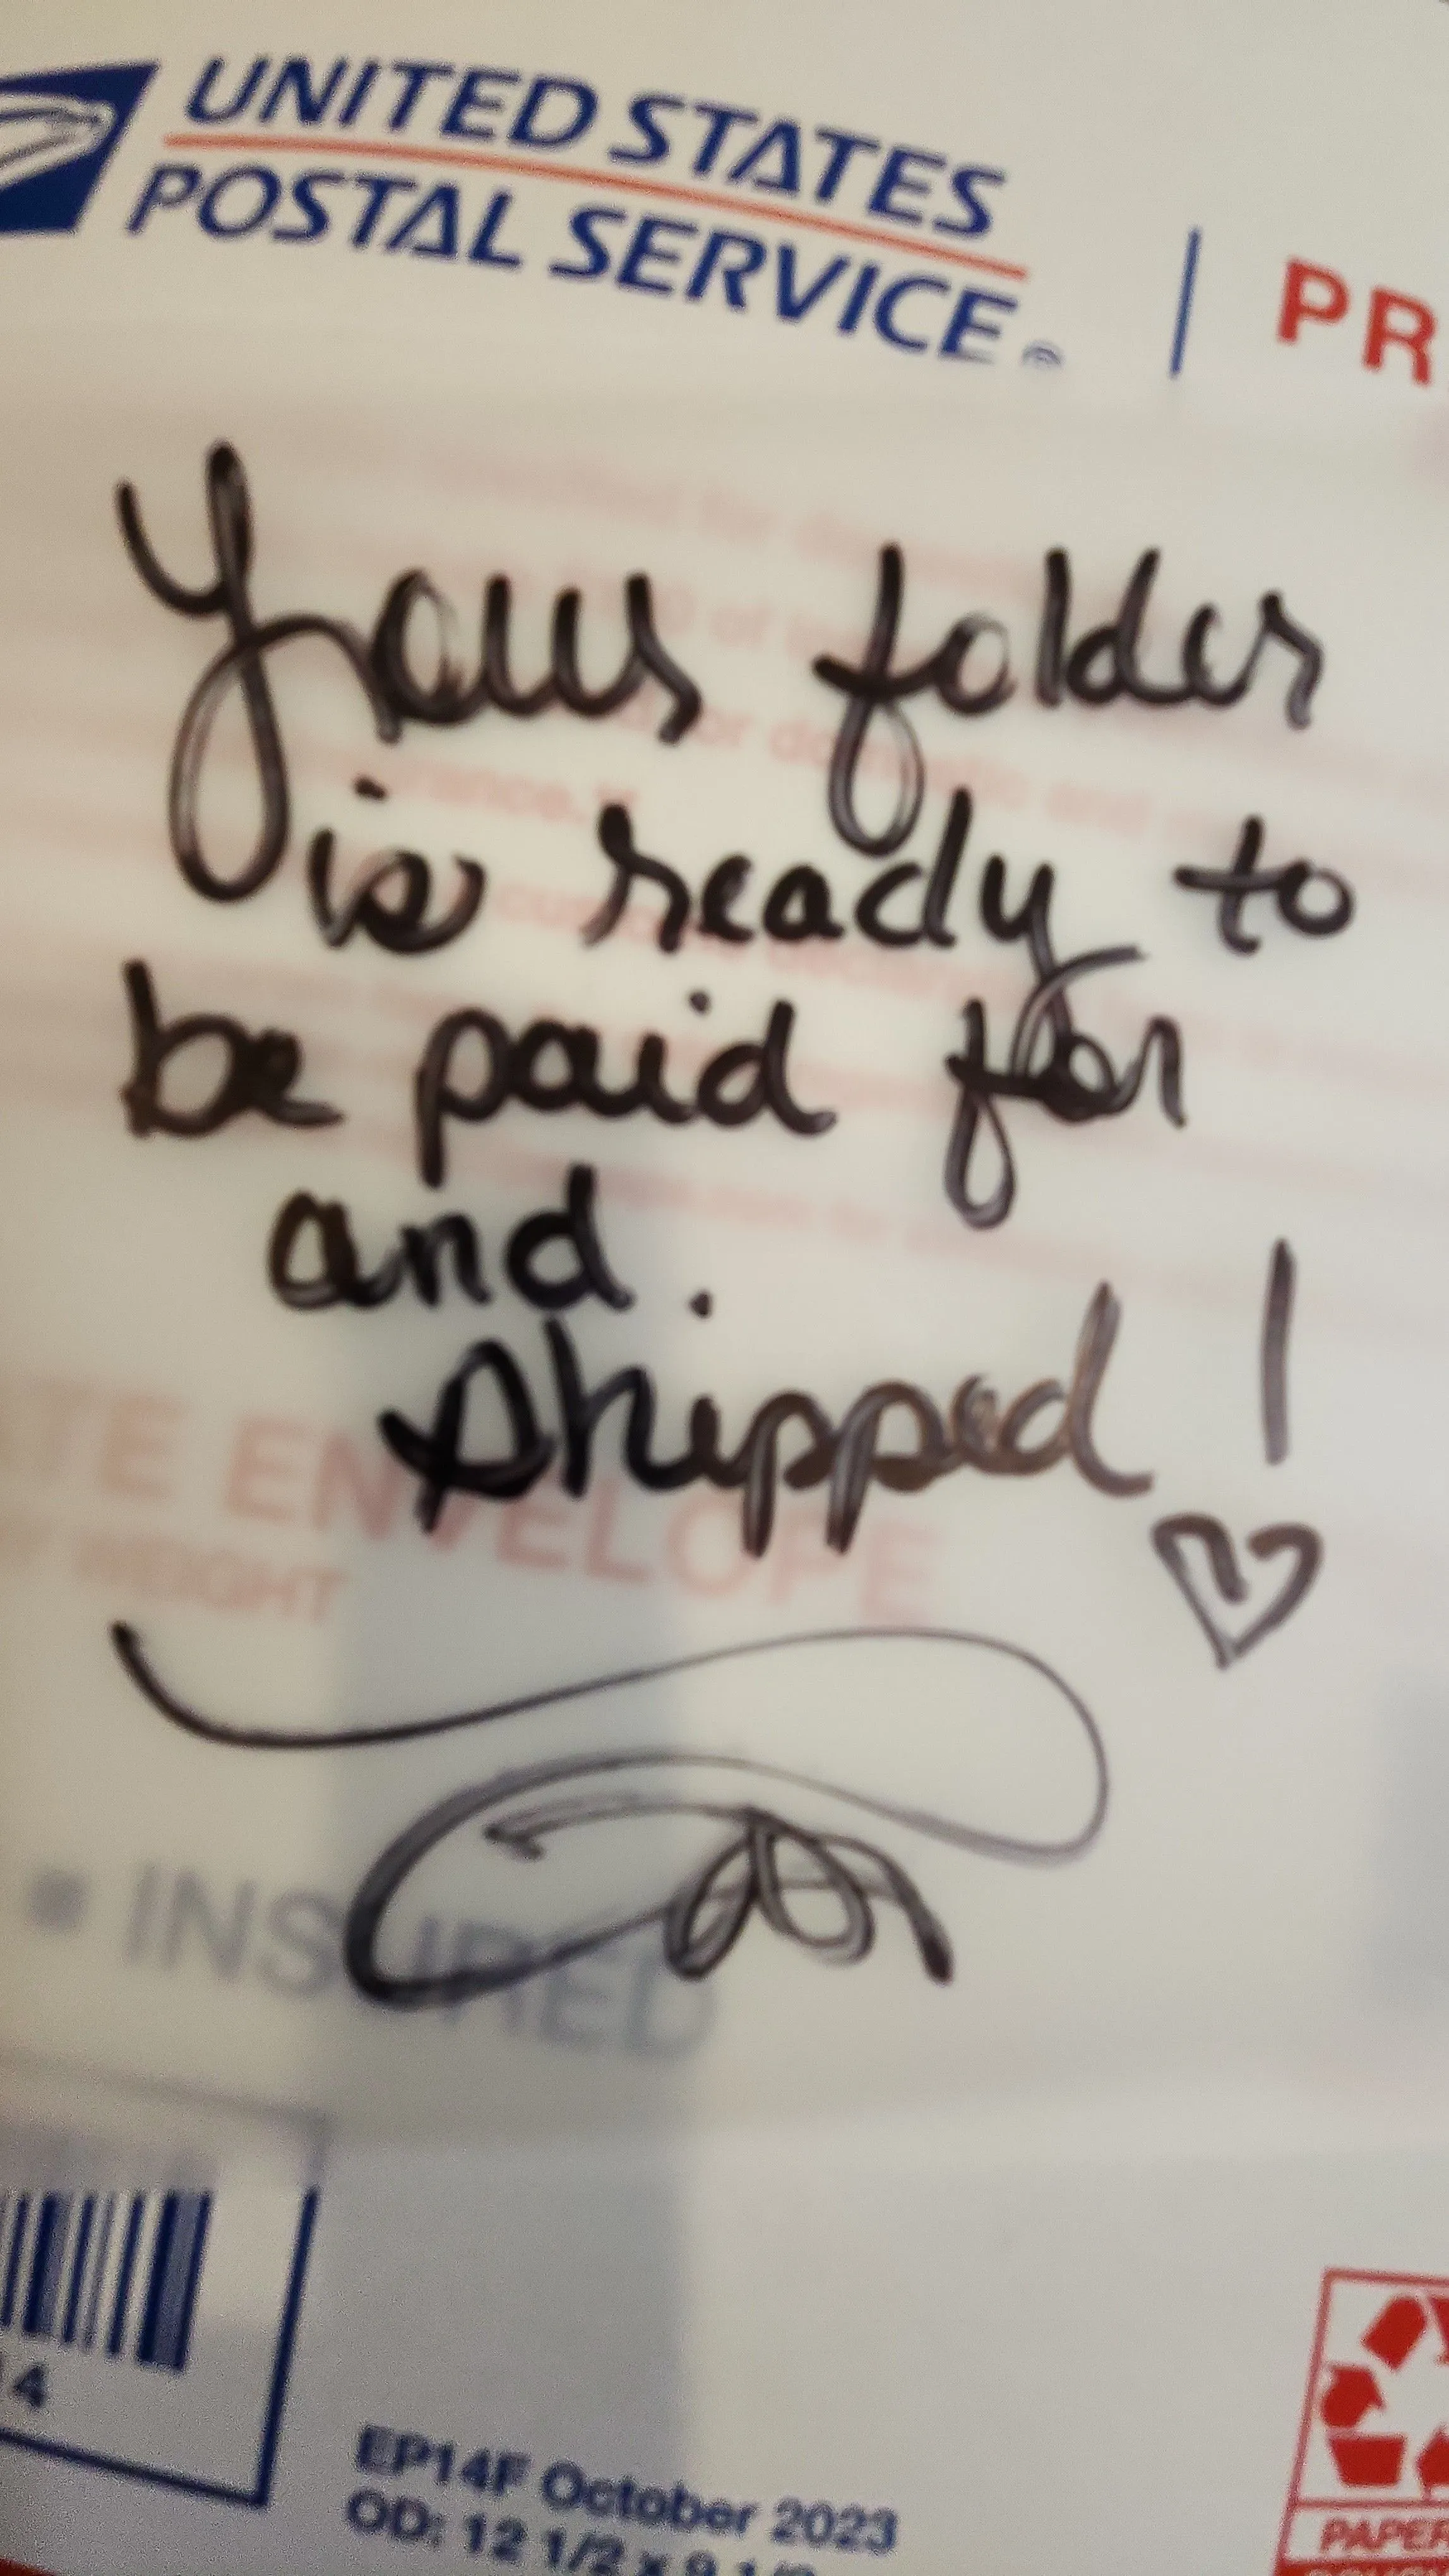 UNITED STATES
POSTAL SERVICE®
PR
Your folder
is ready to
be paid for
and
Shipped!
TE ENVELOPE
WEIGHT
INSURED
14
EP14F October 2023
OD: 12 1/2 x 9 1/2
PAPER